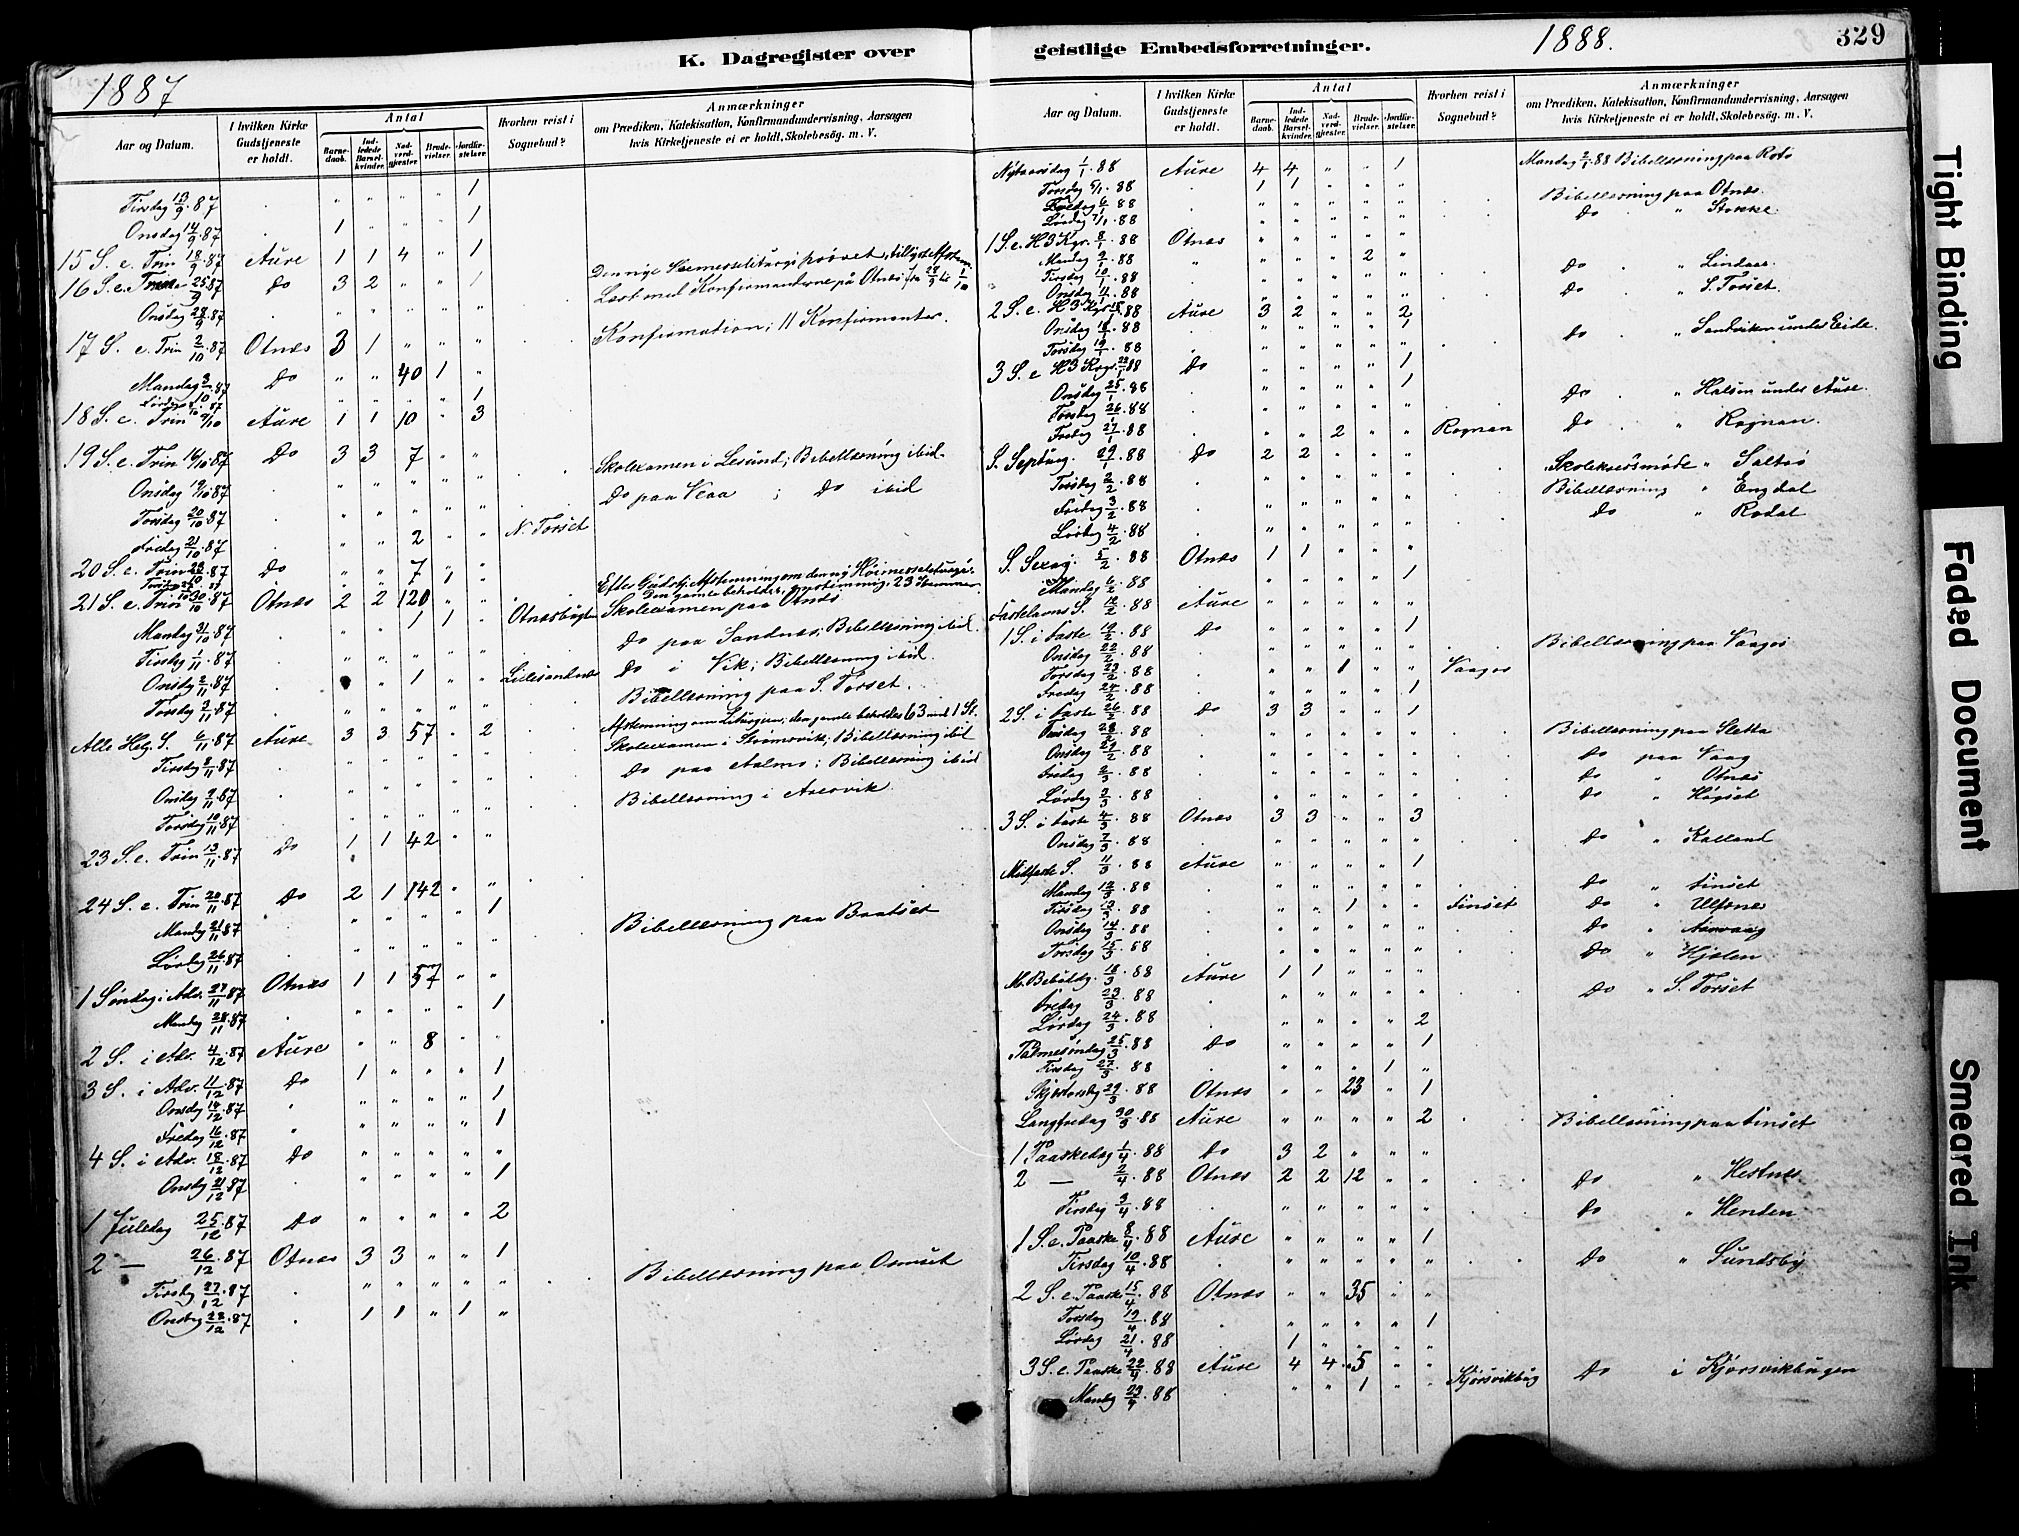 K. Dagregister over
1887
Aar og Datum.
I hvilken Kirke Gudstjeneste er holdt.
Antal
Barnedaab.
Indledede Barselkvinder.
Nadverdgjester.
Brudevielser.
Jordfæstelser.
Hvorhen reist i Sognebud?
Anmærkninger
om Prædiken, Katekisation, Konfirmandundervisning, Aarsagen
hvis Kirketjeneste ei er holdt, Skolebesøg. m. V.
Tirsdag 13/9 87 . " " " " 1
Onsdag 14/9 87 . 1 " " " 1
15 S. e. Trin 18/9 87 Aure 1 1 4 " 1
16 S. e. Trin 25/9 87 Do 3 2 " " 1
Onsdag 28/9 87 Læst med Konfirmanderne på Otnæs fra 28/9 til 1/10
17 S. e. Trin 2/10 87 Otnæs 3 1 " " " Konfirmation; 11 Konfirmanter.
Mandag 3/10 87 Do " " 40 1 "
Lørdag 8/10 87 " " " " 1
18 S. e. Trin 9/10 Aure 1 1 10 " 3
19 S. e. Trin 16/10 87 Do 3 3 7 " "
Onsdag 19/10 87 . " " " " " Skolexamen i Lesund; Bibellæsning ibid.
Torsdag 20/10 87 . " " " " " Do paa Veaa ; Do ibid
Fredag 21/10 87 " " 2 " " N. Torset
20 S. e. Trin 23/10 87 Do " " 7 " "
21 S. e. Trin 30/10 87 Otnæs 2 2 120 " "
Mandag 31/10 87 . " " 1 1 " Otnæsbugten Skolexamen paa Otnæs
Tirsdag 1/11 87 . " " " " " Do paa Sandnæs; Bibellæsning ibid.
Onsdag 2/11 87 " 1 " " Lillesandnæs Do i Vik; Bibellæsning ibid.
Torsdag 3/11 87 . " " " " " Bibellæsning paa S. Torset.
Alle Helg. S. 6/11 87 Aure 3 3 57 " 2 Afstemning om Liturgien; den gamle beholdes 63 mod 1 St.
Tirsdag 8/11 87 . " " " " " Skolexamen i Strømsvik; Bibellæsning ibid
Onsdag 9/11 87 . " " " " " Do paa Aalmo; Bibellæsning ibid
Torsdag 10/11 87 . " " " " " Bibellæsning i Aresvik
23 S. e. Trin 13/11 87 Do 1 1 42 " "
24 S. e. Trin 20/11 87 Do 2 1 142 " "
Mandag 21/11 87 " " " " 1
Lørdag 26/11 87 " " " " " Bibellæsning paa Baatset
1 Søndag i Adv. 27/11 87 Otnæs 1 1 57 " "
Mandag 28/11 87 . " " " " 1
2 S. i Adv. 4/12 87 Aure " " 8 " "
3 S. i Adv. 11/12 87 Do 1 " " " 1
Onsdag 14/12 87 " " " " " 1
Fredag 16/12 87 " " " " " 1
4 S. i Adv. 18/12 87 Do " " " " "
Onsdag 21/12 87 . " " " " 1
1 Juledag 25/12 87 Do " " " " 2
2 — 26/12 87 Otnæs 3 3 " " 1
Tirsdag 27/12 87 . " " " " " Bibellæsning paa Osmuset
Onsdag 28/12 87 . 1 1 " 1 "
geistlige Embedsforretninger.
1888.
329
Aar og Datum.
I hvilken Kirke Gudstjeneste er holdt.
Antal
Barnedaab.
Indledede Barselkvinder.
Nadverdgjester.
Brudevielser.
Jordfæstelser.
Hvorhen reist i Sognebud?
Anmærkninger
om Prædiken, Katekisation, Konfirmandundervisning, Aarsagen
hvis Kirketjeneste ei er holdt, Skolebesøg. m. V.
Nytaarsdag 1/1 88 Aure 4 4 " " 1 Mandag 2/1 88 Bibellæsning paa Rotø
Torsdag 5/1 88 . 1 1 " " "
Fredag 6/1 88 Bibellæsning paa Otnæs.
Lørdag 7/1 88 Do " Stokke.
1 S. e. H3 Kgr. 8/1 88 Otnæs " " " " "
Mandag 9/1 88 " " " " 2 "
Tirsdag 10/1 88 Do " Lindaas.
Onsdag 11/1 88 Do " S. Torset.
2 S. e. H3 Kgr. 15/1 88 Aure 3 2 " " 2
Onsdag 18/1 88 " " " " 1
Torsdag 19/1 88 Do " Sandviken under Eide.
3 S. e H3 Kgr. 22/1 88 Do " " " " 1
Onsdag 25/1 88 " " " " 1
Torsdag 26/1 88 Do " Halsen under Aure.
Fredag 27/1 88 " " 2 " " Rognan Do " Rognan.
S. Septuag. 29/1 88 Do 2 2 " " "
Torsdag 2/2 88 Skolekredsmøde " Saltrø
Fredag 3/2 88 Bibellæsning " Engdal
Lørdag 4/2 88 Do " Rodal
S. Sexag. 5/2 88 Otnæs 1 1 " " "
Mandag 6/2 88 " " " " 1
Fastelavns S. 12/2 88 Aure " " " " "
1 S. i Faste 19/2 88 Do " " " " 1
Onsdag 22/2 88 Bibellæsning paa Vaagos
Torsdag 23/2 88 " " 1 " " Vaagos
Fredag 24/2 88 " " " " 1
2 S. i Faste 26/2 88 Do 3 3 " " 1
Tirsdag 28/2 88 Bibellæsning paa Sletta
Onsdag 29/2 88 Do paa Vaag
Fredag 2/3 88 Do " Otnæs
Lørdag 3/3 88 Do " Høgset
3 S. i Faste 4/3 88 Otnæs 3 3 " " 3
Onsdag 7/3 88 Do " Kalland
Midfaste S. 11/3 88 Aure " " " " 1
Mandag 12/3 88 Do " Finset
Tirsdag 13/3 88 " " 1 " " Finset Do " Ulfsnes
Onsdag 14/3 88 Do " Aarvaag
Torsdag 15/3 88 Do " Hjølen
M. Bebudelg. 18/3 88 Aure 1 1 " " "
Fredag 23/3 88 Do " S. Torset
Lørdag 24/3 88 " " " " 2
Palmesøndag 25/3 88 Do " " " " 1
Tirsdag 27/3 88 " " " 1 "
Skjærtorsdag 29/3 88 Otnæs " " 23 " 1
Langfredag 30/3 88 Aure " " " " 2 Bibellæsning paa Finset
1 Paaskedag 1/4 88 Do 3 2 " " "
2 — 2/4 88 Otnæs 2 2 12 " " Do " Hestnæs
Tirsdag 3/4 88 Do " Henden
1 S. e. Paaske 8/4 88 Aure " " " " 1
Tirsdag 10/4 88 Do " Sundsby
2 S. e. Paaske 15/4 88 Otnæs " " 35 " "
Torsdag 19/4 88 " " " " 1
Lørdag 21/4 88 1 " " " "
3 S. e. Paaske 22/4 88 Aure 4 4 5 " "
Mandag 23/4 88 . " " 1 " " Kjørsvikbug Do i Kjørsvikbugen
Tight Binding
Faded Document
Smeared Ink